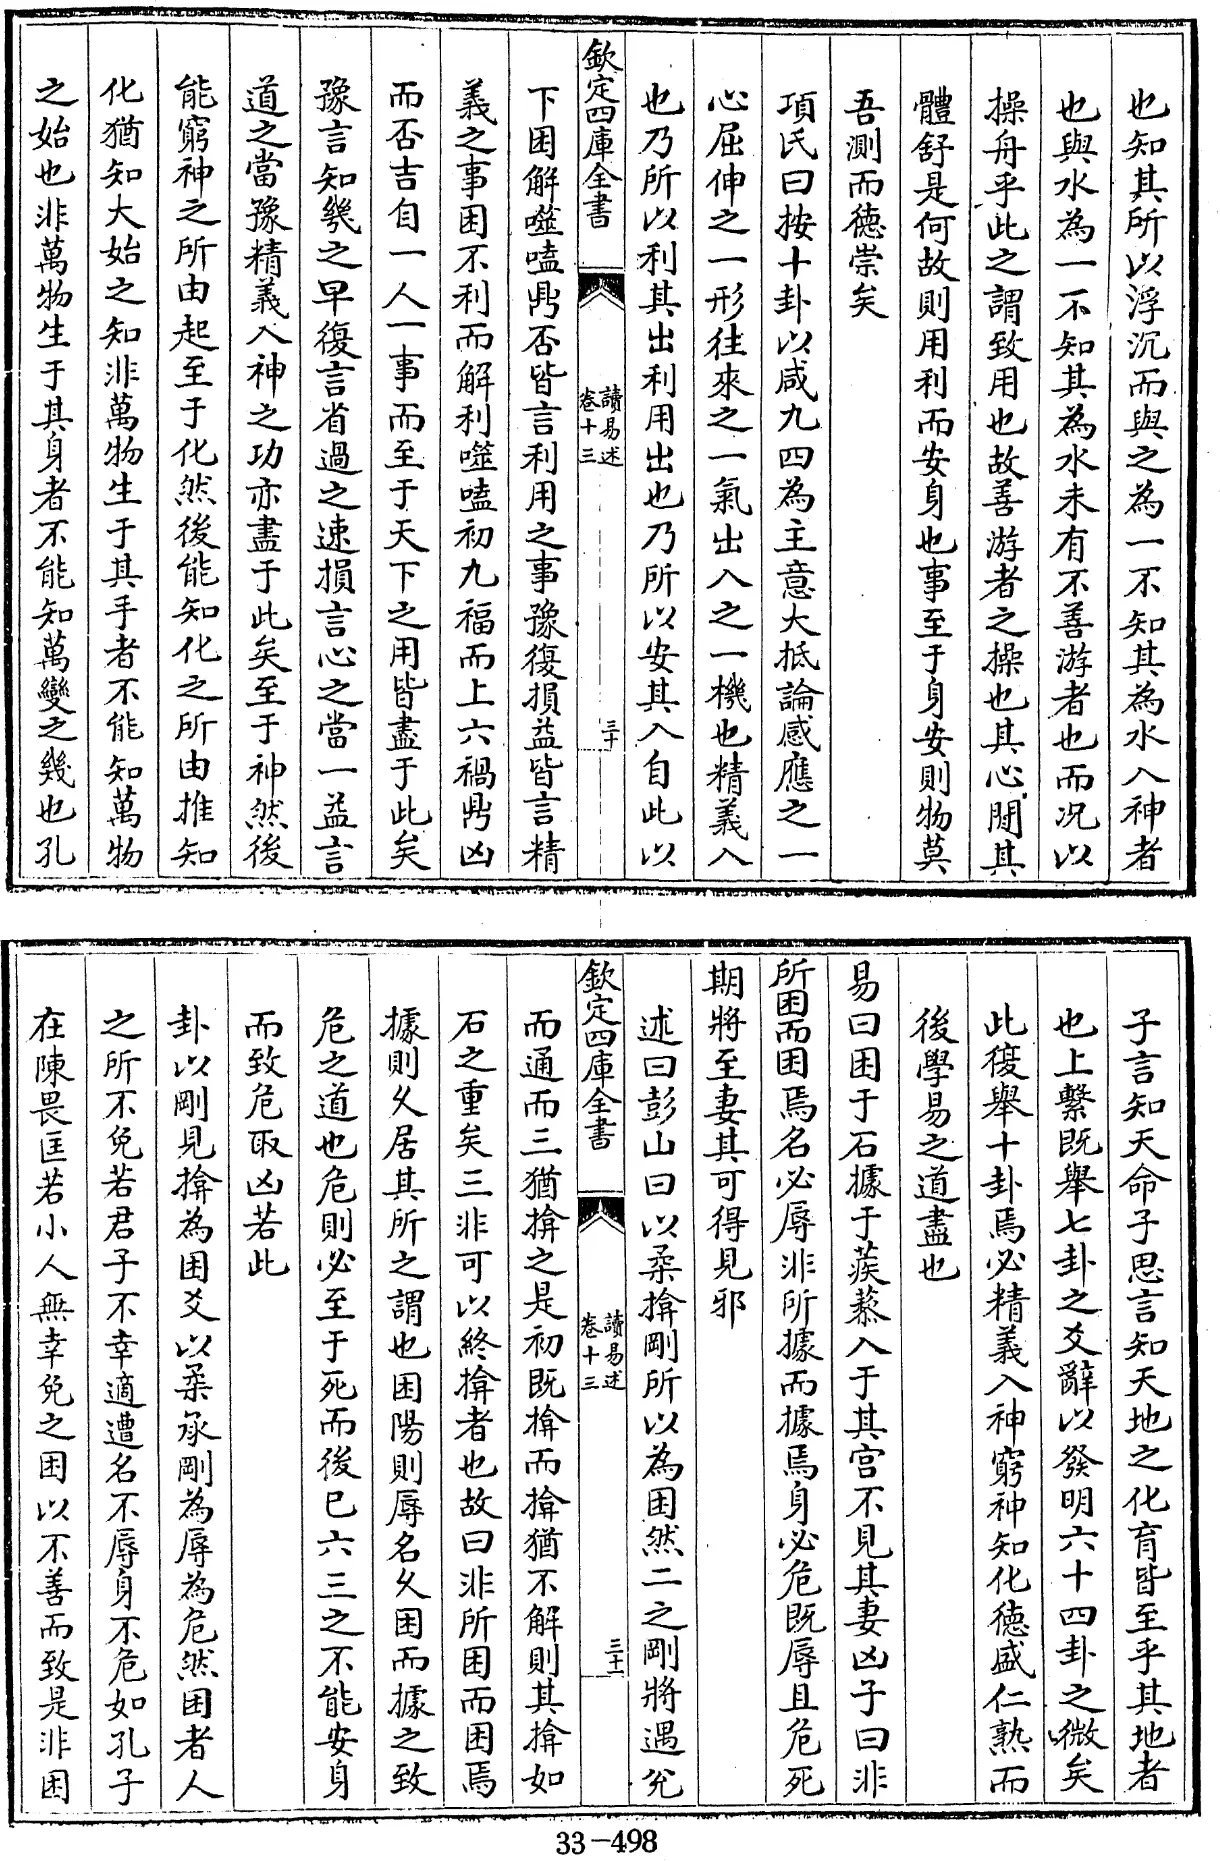 也知其所以浮沉而與之為一不知其為水入神者
也與水為一不知其為水未有不善游者也而况以
操舟乎此之謂致用也故善游者之操也其心閒其
體舒是何故則用利而安身也事至于身安則物莫
吾測而德崇矣
項氏曰按十卦以咸九四為主意大抵論感應之一
心屈伸之一形往來之一氣出入之一機也精義入
也乃所以利其出利用出也乃所以安其入自此以
欽定四庫全書
讀易述
卷十三
三十
下困解噬嗑鼎否皆言利用之事豫復損益皆言精
義之事困不利而解利噬嗑初九福而上六禍鼎凶
而否吉自一人一事而至于天下之用皆盡于此矣
豫言知幾之早復言省過之速損言心之當一益言
道之當豫精義入神之功亦盡于此矣至于神然後
能窮神之所由起至于化然後能知化之所由推知
化猶知大始之知非萬物生于其手者不能知萬物
之始也非萬物生于其身者不能知萬變之幾也孔
子言知天命子思言知天地之化育皆至乎其地者
也上繫既舉七卦之爻辭以發明六十四卦之微矣
此復舉十卦焉必精義入神窮神知化德盛仁熟而
後學易之道盡也
易曰困于石據于蒺藜入于其宫不見其妻凶子曰非
所困而困焉名必辱非所據而據焉身必危既辱且危死
期將至妻其可得見邪
述曰彭山曰以柔揜剛所以為困然二之剛將遇兊
欽定四庫全書
讀易述
卷十三
三十一
而通而三猶揜之是初既揜而揜猶不解則其揜如
石之重矣三非可以終揜者也故曰非所困而困焉
據則久居其所之謂也困陽則辱名久困而據之致
危之道也危則必至于死而後已六三之不能安身
而致危取凶若此
卦以剛見揜為困爻以柔承剛為辱為危然困者人
之所不免若君子不幸適遭名不辱身不危如孔子
在陳畏匡若小人無幸免之困以不善而致是非困
33-498